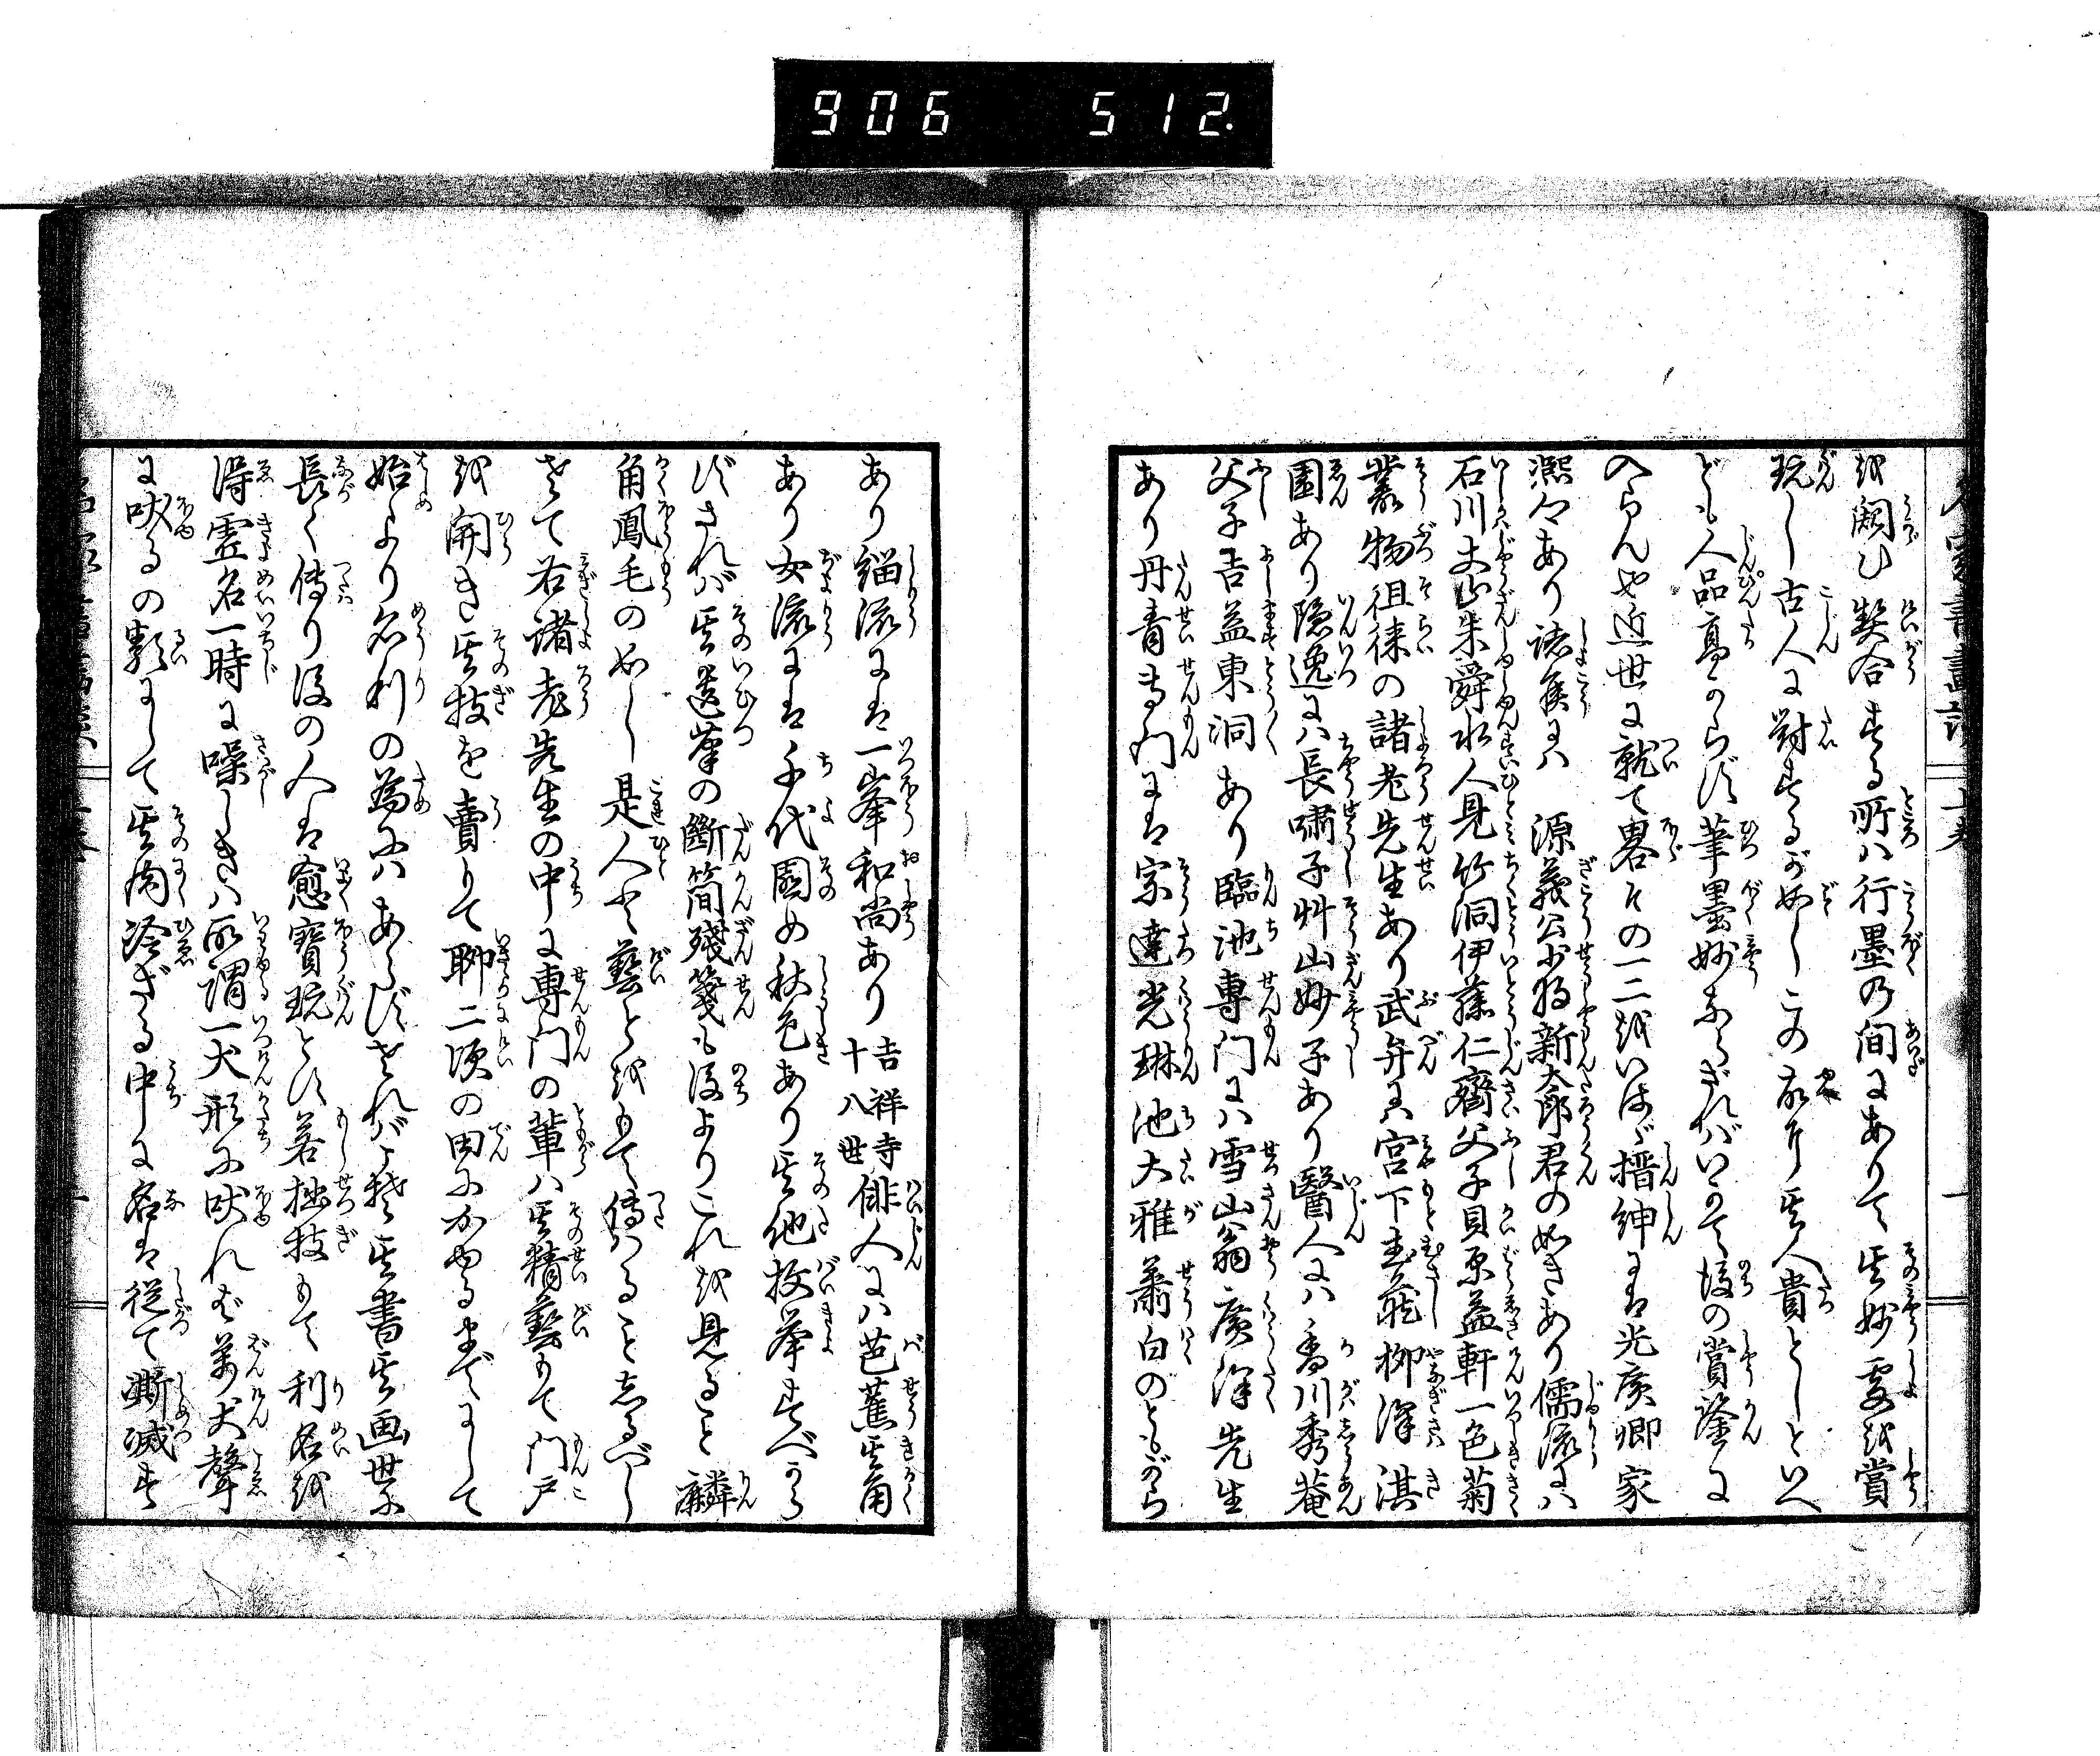 906 512.
を闚ひ契合する所ハ行墨の間にありて其妙処を賞
玩し古人に対するが如しこの故に其人貴としといへ
ども人品高からず筆墨妙ならざれバいかで後の賞鑒に
入らんや近世に就て畧その一二をいはゞ搢紳にハ光廣卿家
凞々あり諸侯にハ源義公少将新太郎君の如きあり儒流にハ
石川丈山朱舜水人見竹洞伊藤仁齋父子貝原益軒一色菊
叢物徂徠の諸老先生あり武弁にハ宮下主鷹柳澤淇
園あり隠逸にハ長嘯子艸山妙子あり醫人にハ香川秀菴
父子吉益東洞あり臨池專門にハ雪山翁廣澤先生
あり丹青專門にハ宗達光琳池大雅蕭白のともがら
あり緇流にハ一峯和尚あり吉祥寺十八世俳人にハ芭蕉其角
あり女流にハ千代園女秋色あり其他枚挙すべから
ずされバ其遺筆の断簡残箋も後よりこれを見ること麟
角鳳毛の如し是人と藝とをもて傳ハること志るべし
さて右諸老先生の中に專門の輩ハ其精藝もて門戸
を開き其技を賣りて聊二頃の田にかゆるまでにして
始より名利の為にハあらずされバよく其書其画世に
長く傳り後の人ハ愈寶玩とす若拙技もて利名を
得虚名一時に噪しきハ所謂一犬形に吠れば萬犬聲
に吠るの類にして其肉冷ざる中に名ハ従て澌滅す